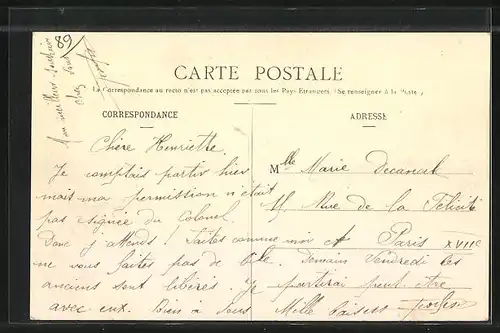 89
Mon meilleur souvenir
chez vous
CARTE POSTALE
La Correspondance au recto n'est pas acceptée par tous les Pays Etrangers. (Se renseigner à la Poste)
CORRESPONDANCE
ADRESSE
Chère Henriette.
Je comptais partir hier
mais ma permission n'était
pas signée du Colonel
Donc j'attends! Faites comme moi et
ne vous faites pas de bile. Demain Vendredi les
anciens sont libérés. Je partirai peut être
avec eux. Bien à vous Mille baisers
Mlle Marie
15 Rue de la Félicité
Paris
XVIIe